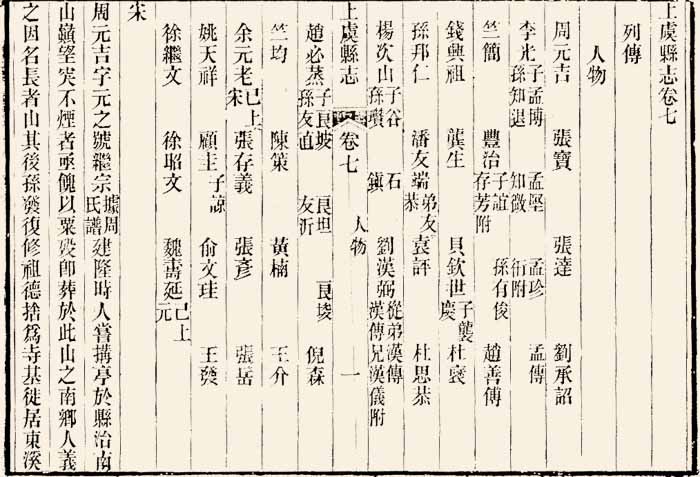 上虞縣志卷七
列傳
人物
周元吉 張寶 張達 劉承詔
李光 子孟博 孟堅 孟珍 孟傳 孫知退 知微 衎附
竺簡 豐治 子誼 存芳附 孫有俊 趙善傅
錢興祖 龔生 貝欽世 子襲慶 杜褎
孫邦仁 潘友端 弟友恭 袁評 杜思恭
楊次山 子谷 石 孫瓚 鎮 劉漢弼 從弟漢傳 漢傳兄漢儀附
上虞縣志 卷七 人物 一
趙必蒸 子良坡 良坦 良埈 孫友直 友沂 倪森
竺均 陳策 黃楠 王介
余元老 已上宋 張存義 張彥 張岳
姚天祥 顧圭 子諒 俞文珪 王發
徐繼文 徐昭文 魏壽延 已上元
宋
周元吉字元之號繼宗 墟周氏譜 建隆時人嘗搆亭於縣治南
山嶺望突不煙者亟餽以粟歿卽葬於此山之南鄉人義
之因名長者山其後孫爕復修祖德捨爲寺基徙居東溪